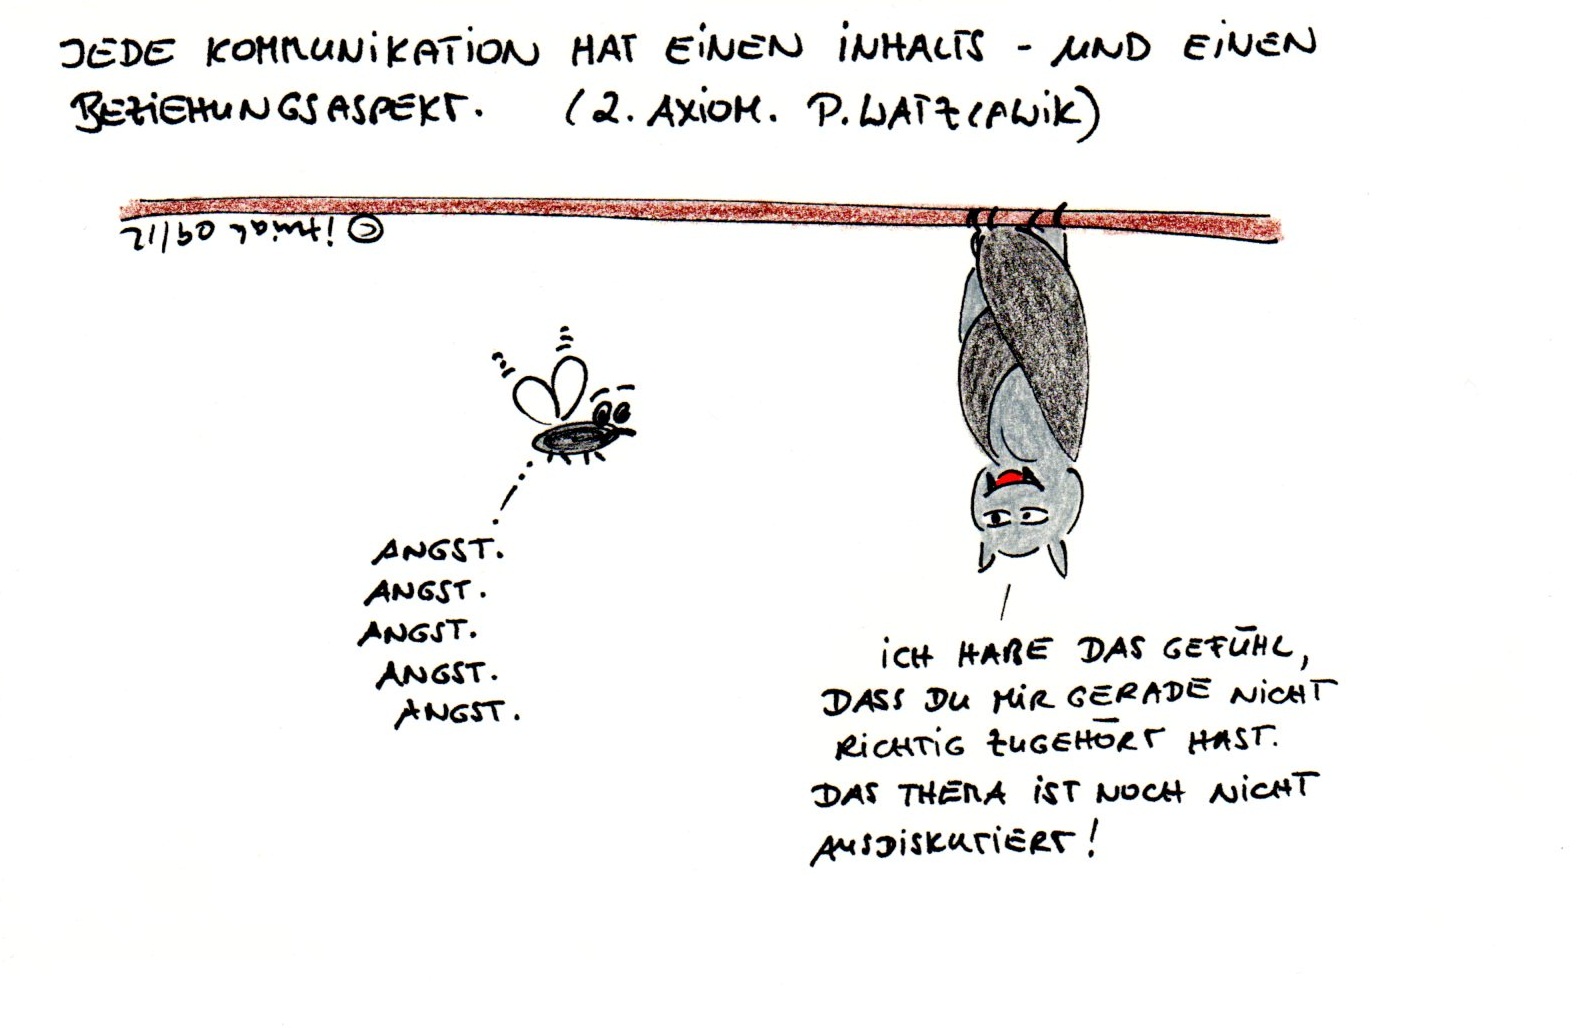 JEDE KOMMUNIKATION HAT EINEN INHALTS - UND EINEN
BEZIEHUNGSASPEKT. (2. AXIOM. P. WATZLAWIK)
ANGST.
ANGST.
ANGST.
ANGST.
ANGST.
ICH HABE DAS GEFÜHL,
DASS DU MIR GERADE NICHT
RICHTIG ZUGEHÖRT HAST.
DAS THEMA IST NOCH NICHT
AUSDISKUTIERT!